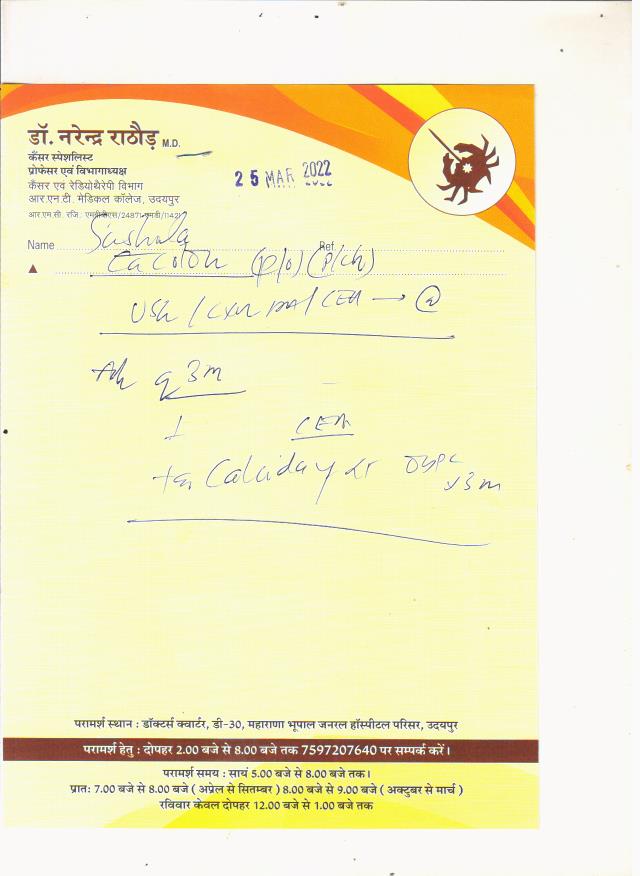 डॉ. नरेन्द्र राठौड़ M.D.
कैंसर स्पेशलिस्ट
प्रोफेसर एवं विभागाध्यक्ष
कैंसर एवं रेडियोथैरेपी विभाग
आर.एन.टी. मेडिकल कॉलेज, उदयपुर
आर.एम.सी. रजि.: एमबीबीएस/24871
25 MAR 2022
Name Sushula Ref.
Ca Colon (P/O) (P/Ch)
USG / CXR PA / CEA →
Adv q 3m
CEA
Tab Calciday
x3m
परामर्श स्थान : डॉक्टर्स क्वार्टर, डी-30, महाराणा भूपाल जनरल हॉस्पीटल परिसर, उदयपुर
परामर्श हेतु : दोपहर 2.00 बजे से 8.00 बजे तक 7597207640 पर सम्पर्क करें।
परामर्श समय : सायं 5.00 बजे से 8.00 बजे तक।
प्रातः 7.00 बजे से 8.00 बजे ( अप्रेल से सितम्बर ) 8.00 बजे से 9.00 बजे ( अक्टुबर से मार्च )
रविवार केवल दोपहर 12.00 बजे से 1.00 बजे तक